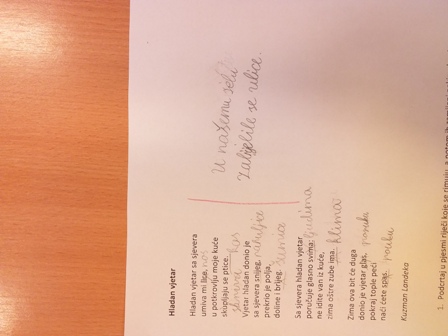 Hladan vjetar
Hladan vjetar sa sjevera
umiva mi lice, nos
u potkrovlju moje kuće
skupljaju se ptice.
Vjetar hladan donio je
sa sjevera snijeg,
prekrio je polja,
doline i brijeg. zemia
Sa sjevera hladan vjetar
poručuje glasno svima: ljudima
ne idite van iz kuće,
zima oštre zube ima. klima
Zimia ova bit će duga
donio je vjetar glas, poruku
pokraj tople peći
naći ćete spas. poruku
Kuzman Landeka
U našemu selu
zabijelile se ulice.
Podcrtaj u pjesmi riječi koje se rimuju, a potom ih